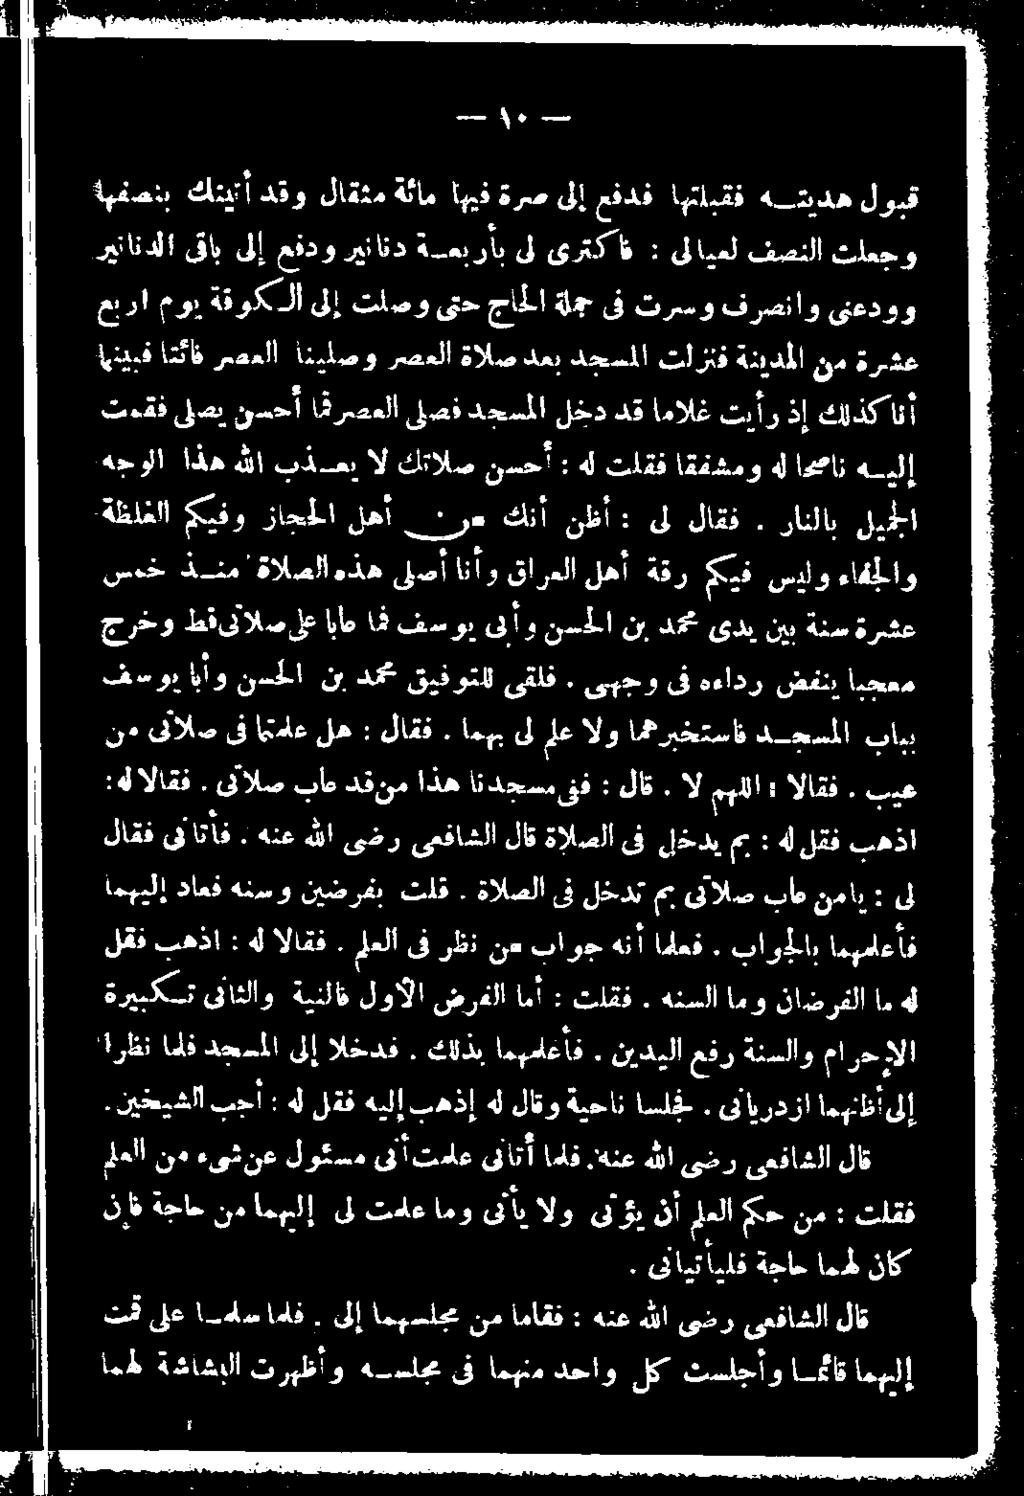 — ١٠ —
قبول هديته فقبلتها فدفع إلى صرة فيها مائة مثقال وقد أتيتك بنصفها
وجعلت النصف لعيالى : فاكترى لى بأربعة دنانير ودفع إلى باقى الدنانير
وودعنى وانصرف وسرت فى جملة الحاج حتى وصلت إلى الكوفة يوم اربع
عشرة من المدينة فنزلت المسجد بعد صلاة العصر وصلينا العصر فائتا فبينما
أنا كذلك إذ رأيت غلاما قد دخل المسجد فصلى العصر فما أحسن يصلى فقمت
إليه ناصحا له ومشفقا فقلت له : أحسن صلاتك لا يعذب الله هذا الوجه
الجميل بالنار . فقال لى : أظن أنك من أهل الحجاز وفيكم الغلظة
والجفاء وليس فيكم رقة أهل العراق وأنا أصلى هذه الصلاة منذ خمس
عشرة سنة بين يدى محمد بن الحسن وأبى يوسف فما عابا على صلاتى قط وخرج
معجبا ينفض رداءه فى وجهى . فلقى للتوفيق محمد بن الحسن وأبا يوسف
بباب المسجد فاستخبرهما ولا علم لى بهما . فقال : هل علمتما فى صلاتى من
عيب . فقالا : اللهم لا . قال : ففى مسجدنا هذا من قد عاب صلاتى . فقالا له :
اذهب فقل له : بم يدخل فى الصلاة قال الشافعى رضى الله عنه . فأتانى فقال
لى : يا من عاب صلاتى بم تدخل فى الصلاة . قلت بفرضين وسنه فعاد إليهما
فأعلمهما بالجواب . فعلما أنه جواب من نظر فى العلم . فقالا له : اذهب فقل
له ما الفرضان وما السنه . فقلت : أما الفرض الأول فالنية والثانى تكبيرة
الإحرام والسنة رفع اليدين . فأعلمهما بذلك . فدخلا إلى المسجد فلما نظرا
إلى أظنهما ازدريانى . فجلسا ناحية وقال له إذهب إليه فقل له : أجب الشيخين .
قال الشافعى رضى الله عنه . فلما أتانى علمت أنى مسئول عن شىء من العلم
فقلت : من حكم العلم أن يؤتى ولا يأتى وما علمت لى إليهما من حاجة فإن
كان لهما حاجة فليأتيانى .
قال الشافعى رضى الله عنه : فقاما من مجلسهما إلى . فلما سلما على قمت
إليهما قائما وأجلست كل واحد منهما فى مجلسه وأظهرت البشاشة لهما